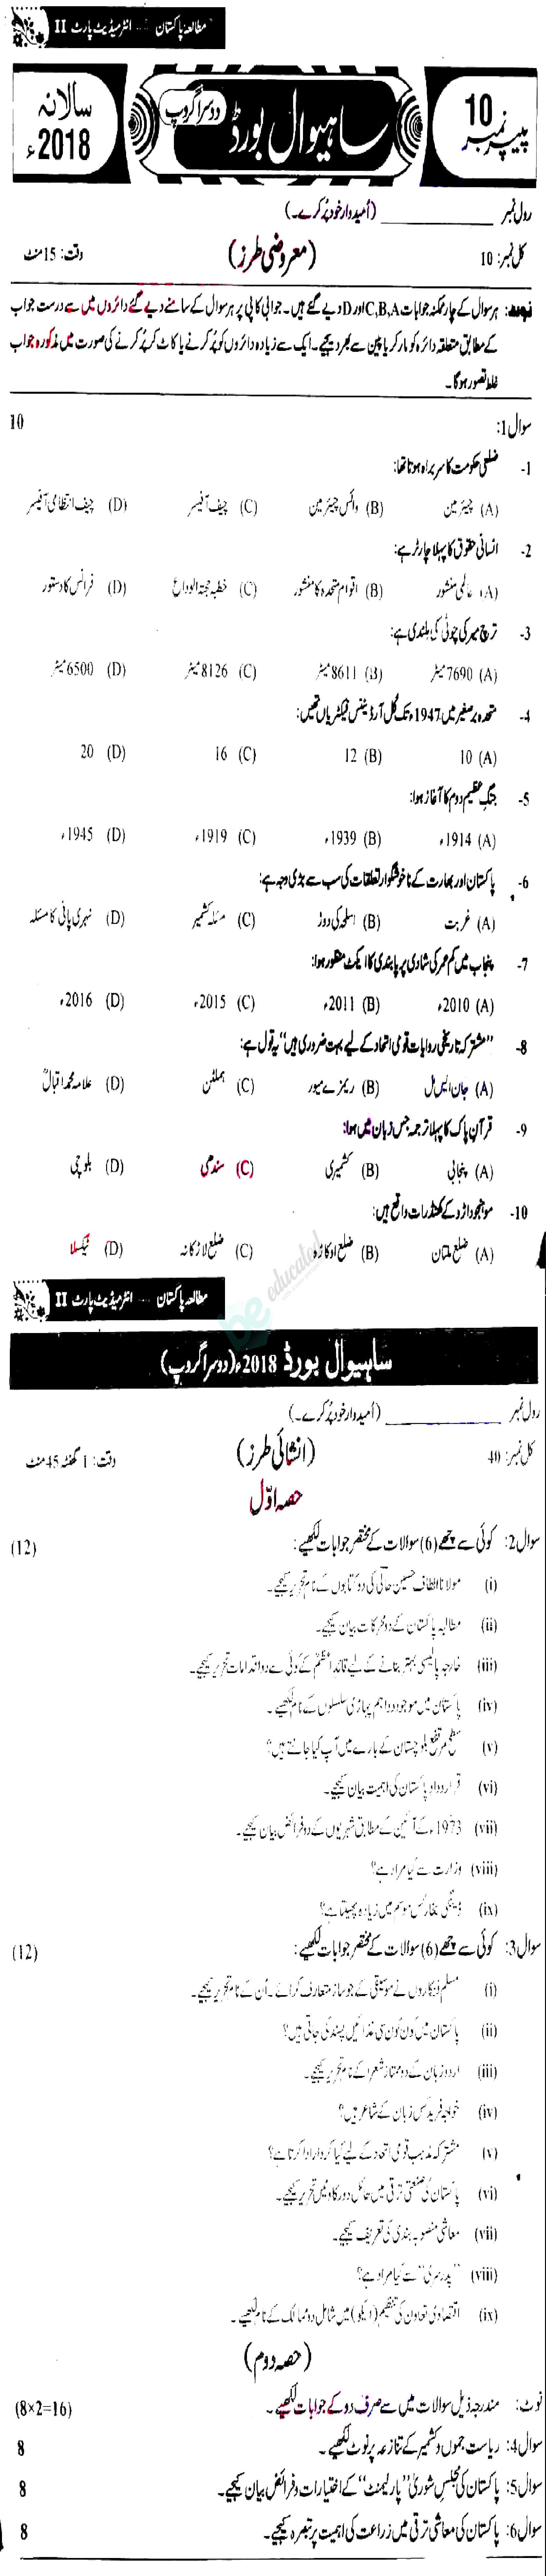 مطالعہ پاکستان --- انٹرمیڈیٹ پارٹ II
پیپر نمبر 10
ساہیوال بورڈ
دوسرا گروپ
سالانہ 2018ء
رول نمبر ____________ (اُمیدوار خود پُر کرے۔)
کل نمبر: 10 (معروضی طرز) وقت: 15 منٹ
نوٹ: ہر سوال کے چار ممکنہ جوابات C,B,A اور D دیے گئے ہیں۔ جوابی کاپی پر ہر سوال کے سامنے دیے گئے دائروں میں سے درست جواب
کے مطابق متعلقہ دائرہ کو مارکر یا پین سے بھر دیجیے۔ ایک سے زیادہ دائروں کو پُر کرنے یا کاٹ کر پُر کرنے کی صورت میں مذکورہ جواب
غلط تصور ہوگا۔
سوال 1: 10
1- ضلعی حکومت کا سربراہ ہوتا تھا:
(A) چیئرمین (B) وائس چیئرمین (C) چیف آفیسر (D) چیف انتظامی آفیسر
2- انسانی حقوق کا پہلا چارٹر ہے:
(A) عالمی منشور (B) اقوام متحدہ کا منشور (C) خطبہ حجتہ الوداع (D) فرانس کا دستور
3- ترچ میر کی چوٹی کی بلندی ہے:
(A) 7690 میٹر (B) 8611 میٹر (C) 8126 میٹر (D) 6500 میٹر
4- متحدہ برصغیر میں 1947ء تک کُل آرڈیننس فیکٹریاں تھیں:
(A) 10 (B) 12 (C) 16 (D) 20
5- جنگِ عظیم دوم کا آغاز ہوا:
(A) 1914ء (B) 1939ء (C) 1919ء (D) 1945ء
6- پاکستان اور بھارت کے ناخوشگوار تعلقات کی سب سے بڑی وجہ ہے:
(A) غربت (B) اسلحہ کی دوڑ (C) مسئلہ کشمیر (D) نہری پانی کا مسئلہ
7- پنجاب میں کم عمر کی شادی پر پابندی کا ایکٹ منظور ہوا:
(A) 2010ء (B) 2011ء (C) 2015ء (D) 2016ء
8- ”مشترکہ تاریخی روایات قومی اتحاد کے لیے بہت ضروری ہیں“ یہ قول ہے:
(A) جان ایس مل (B) ریمزے میور (C) ہملٹن (D) علامہ محمد اقبالؒ
9- قرآنِ پاک کا پہلا ترجمہ جس زبان میں ہوا:
(A) پنجابی (B) کشمیری (C) سندھی (D) بلوچی
10- موہنجوداڑو کے کھنڈرات واقع ہیں:
(A) ضلع ملتان (B) ضلع اوکاڑہ (C) ضلع لاڑکانہ (D) ٹیکسلا
be educated
مطالعہ پاکستان --- انٹرمیڈیٹ پارٹ II
ساہیوال بورڈ 2018ء (دوسرا گروپ)
رول نمبر ____________ (اُمیدوار خود پُر کرے۔)
کل نمبر: 40 (انشائی طرز) وقت: 1 گھنٹہ 45 منٹ
حصہ اوّل
سوال 2: کوئی سے چھے (6) سوالات کے مختصر جوابات لکھیے: (12)
(i) مولانا الطاف حسین حالی کی دو کتابوں کے نام تحریر کیجیے۔
(ii) مطالبہ پاکستان کے دو محرکات بیان کیجیے۔
(iii) خارجہ پالیسی بہتر بنانے کے لیے قائداعظمؒ کے کوئی سے دو اقدامات تحریر کیجیے۔
(iv) پاکستان میں موجود دو اہم پہاڑی سلسلوں کے نام لکھیے۔
(v) سطح مرتفع بلوچستان کے بارے میں آپ کیا جانتے ہیں؟
(vi) قراردادِ پاکستان کی اہمیت بیان کیجیے۔
(vii) 1973ء کے آئین کے مطابق شہریوں کے دو فرائض بیان کیجیے۔
(viii) وزارت سے کیا مراد ہے؟
(ix) ڈینگی بخار کس موسم میں زیادہ پھیلتا ہے؟
سوال 3: کوئی سے چھے (6) سوالات کے مختصر جوابات لکھیے: (12)
(i) مسلم فنکاروں نے موسیقی کے جو ساز متعارف کرائے۔ اُن کے نام تحریر کیجیے۔
(ii) پاکستان میں کون کون سی غذائیں پسند کی جاتی ہیں؟
(iii) اردو زبان کے دو ممتاز شعرا کے نام تحریر کیجیے۔
(iv) خواجہ فرید کس زبان کے شاعر ہیں؟
(v) مشترکہ مذہب قومی اتحاد کے لیے کیا کردار ادا کرتا ہے؟
(vi) پاکستان کی صنعتی ترقی میں حائل دو رکاوٹیں تحریر کیجیے۔
(vii) معاشی منصوبہ بندی کی تعریف کیجیے۔
(viii) ”پدرسری“ سے کیا مراد ہے؟
(ix) اقتصادی تعاون کی تنظیم (ایکو) میں شامل دو ممالک کے نام لکھیے۔
(حصہ دوم)
نوٹ: مندرجہ ذیل سوالات میں سے صرف دو کے جوابات لکھیے۔ (8×2=16)
سوال 4: ریاست جموں و کشمیر کے تنازعہ پر نوٹ لکھیے۔ 8
سوال 5: پاکستان کی مجلسِ شوریٰ ”پارلیمنٹ“ کے اختیارات و فرائض بیان کیجیے۔ 8
سوال 6: پاکستان کی معاشی ترقی میں زراعت کی اہمیت پر تبصرہ کیجیے۔ 8